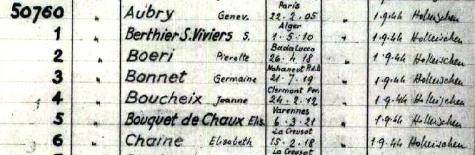 Paris
50760 " Aubry Genev. 22.2.05 " 1.9.44 Holleischen
Alger
1 " Berthier S.Viviers S. 1.5.10 " 1.9.44 Holleischen
Bada Lucco
2 " Boeri Pierette 26.4.18 " 1.9.44 Holleischen
3 " Bonnet Germaine 21.7.19 " 1.9.44 Holleischen
Clermont Fer.
4 " Boucheix Jeanne 24.2.12 " 1.9.44 Holleischen
Varennes
5 " Bouquet de Chaux Elis. 6.3.21 " 1.9.44 Holleischen
La Creusot
6 " Chaine Elisabeth 15.2.18 " 1.9.44 Holleischen
La Creusot